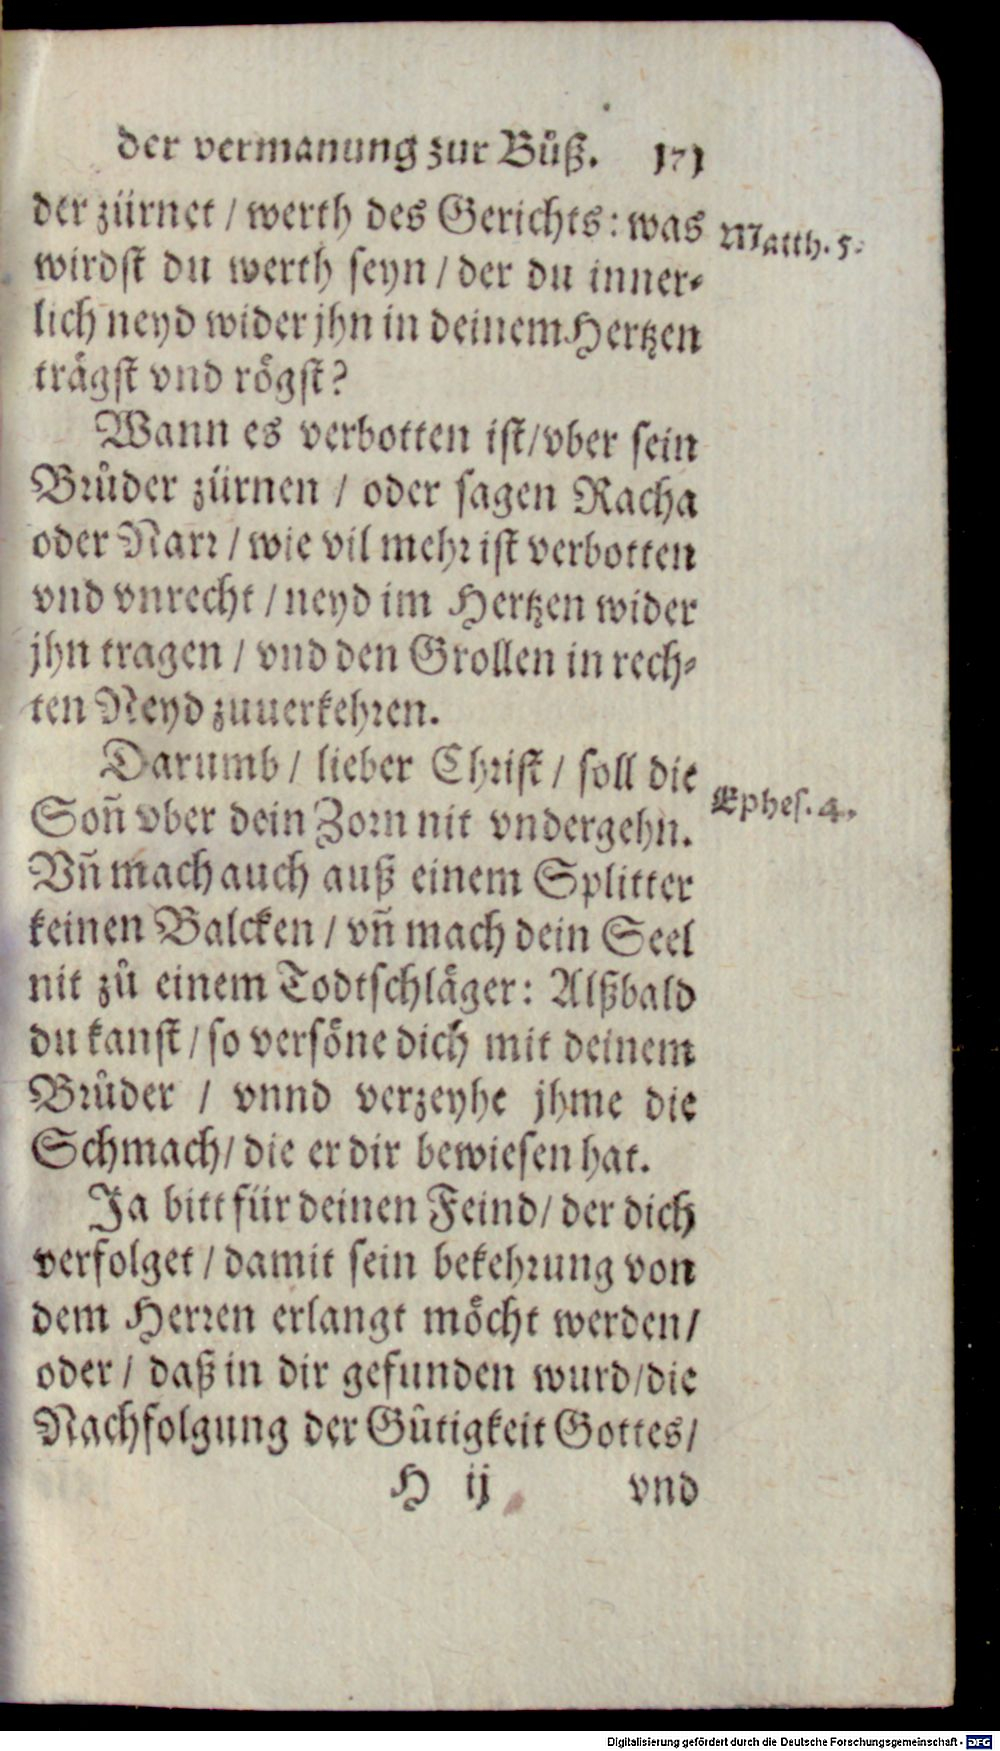 der vermanung zur Bůß. 171
der zürnet / werth des Gerichts: was Matth. 5.
wirdst du werth seyn / der du inner⸗
lich neyd wider jhn in deinem Hertzen
trägst vnd rögst?
Wann es verbotten ist / vber sein
Brůder zürnen / oder sagen Racha
oder Narr / wie vil mehr ist verbotten
vnd vnrecht / neyd im Hertzen wider
jhn tragen / vnd den Grollen in rech⸗
ten Neyd zuuerkehren.
Darumb / lieber Christ / soll die
Soñ vber dein Zorn nit vndergehn. Ephes. 4.
Vñ mach auch auß einem Splitter
keinen Balcken / vñ mach dein Seel
nit zů einem Todtschläger: Alßbald
du kanst / so versöne dich mit deinem
Brůder / vnnd verzeyhe jhme die
Schmach / die er dir bewiesen hat.
Ja bitt für deinen Feind / der dich
verfolget / damit sein bekehrung von
dem Herren erlangt möcht werden /
oder / daß in dir gefunden wurd / die
Nachfolgung der Gütigkeit Gottes /
H ij vnd
Digitalisierung gefördert durch die Deutsche Forschungsgemeinschaft - DFG